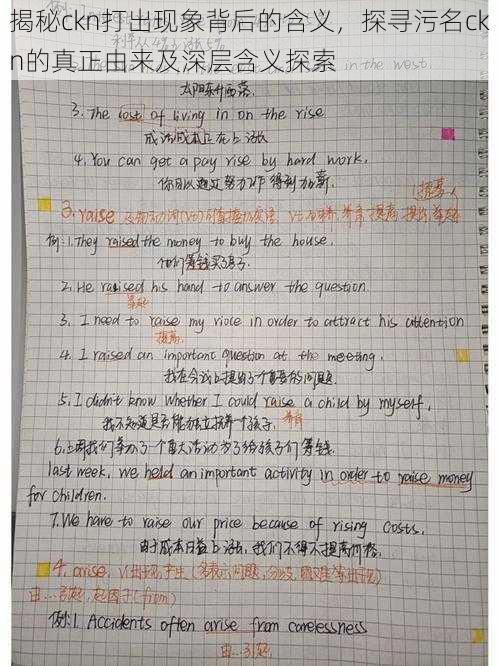 揭秘ckn打出现象背后的含义，探寻污名ck
n的真正由来及深层含义探索
in the west.
太阳东升西落.
3. The cost of living in on the rise
成活成本正在上涨
4. You can get a pay rise by hard work.
你可以通过努力工作得到加薪.
3. raise
例: 1. They raised the money to buy the house.
他们筹钱买了房子
2. He raised his hand to answer the question.
举起
3. I need to raise my vioce in order to attract his attention
提高
4. I raised an important question at the meeting.
我在会议上提出了一个重要的问题.
5. I didn't know whether I could raise a child by myself.
我不知道是否能独立抚养一个孩子. 养育
6. 上周我们举办了一个重大活动为了给孩子们筹钱.
last week, we held an important activity in order to raise money
for children.
7. We have to raise our price because of rising costs.
由于成本日益上涨, 我们不得不提高价格.
4. arise. vi 出现, 产生 (多表示问题, 分歧, 困难等出现)
由…引起, 起因于 (from)
例: 1. Accidents often arise from carelessness
由…引起